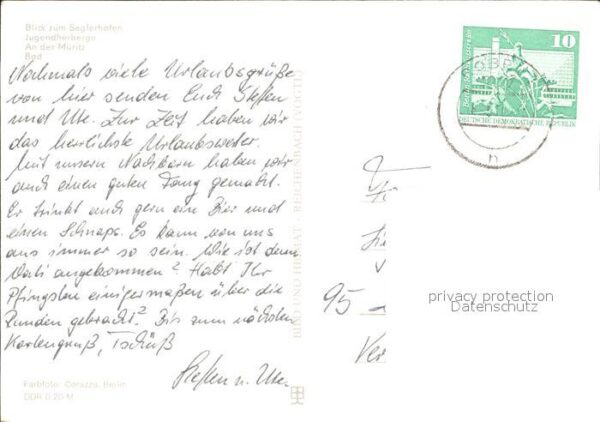 Blick zum Seglerhafen
Jugendherberge
An der Müritz
Bad
Nochmals viele Urlaubsgrüße
von hier senden Euch Steffen
und Ute. Zur Zeit haben wir
das herrlichste Urlaubswetter.
Mit unsern Nachbarn haben wir
auch einen guten Fang gemacht.
Er trinkt auch gern ein Bier und
einen Schnaps. Es kann von uns
aus immer so sein. Wie ist denn
Vati angekommen? Habt Ihr
Pfingsten einigermaßen über die
Runden gebracht? Bis zum nächsten
Kartengruß, Tschüß
Steffen u. Ute.
Farbfoto: Corazza, Berlin
DDR 0,20 M
BILD UND HEIMAT REICHENBACH (VOGTL)
10
DEUTSCHE DEMOKRATISCHE REPUBLIK
n
95
Ver
privacy protection
Datenschutz